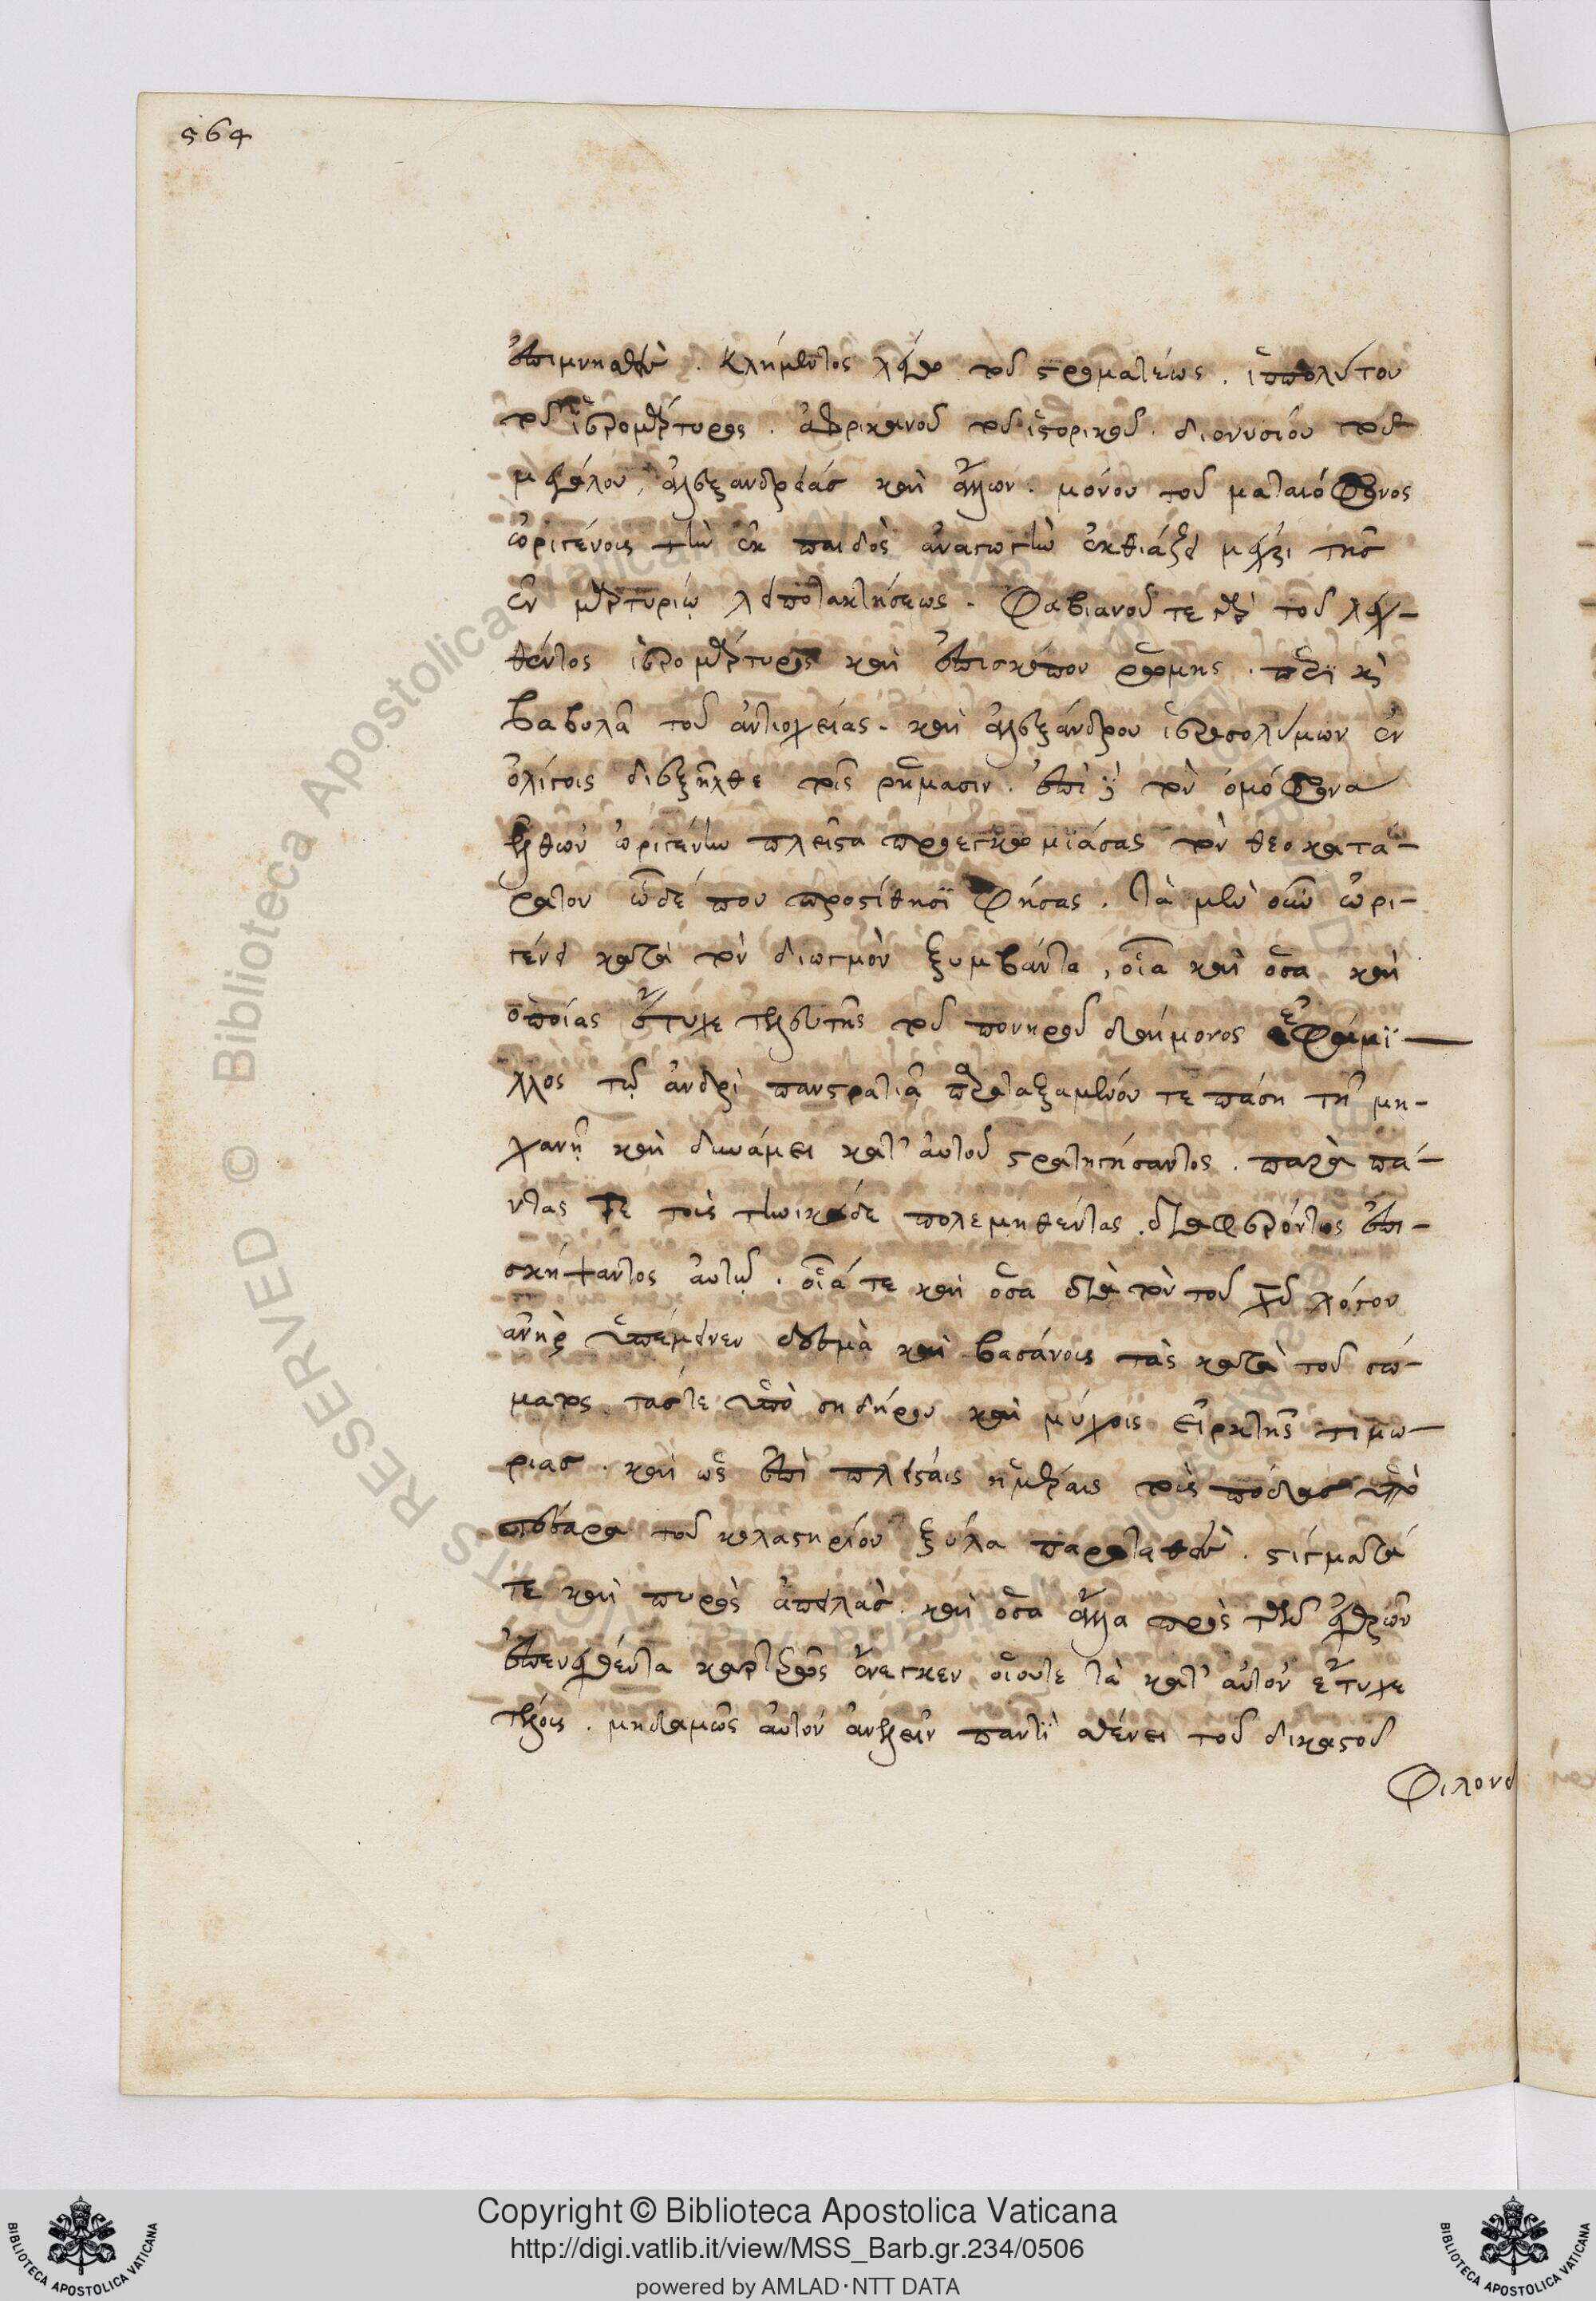 564
ἐπιμνησθεὶς . κλήμεντος λέγω τοῦ στρωματέως . ἱππολύτου
τοῦ ἱερομάρτυρος . ἀφρικανοῦ τοῦ ἱστορικοῦ . διονυσίου τοῦ
μεγάλου, ἀλεξανδρείας καὶ ἄλλων . μόνου τοῦ ματαιόφρονος
ὠριγένους τὴν ἐκ παιδὸς ἀναγωγὴν ἐκθειάζει μέχρι τῆς
ἐν μαρτυρίῳ λειποτακτήσεως . φαβιανοῦ τε περὶ τοῦ λεχ-
θέντος ἱερομάρτυρος καὶ ἐπισκόπου ῥώμης . περὶ καὶ
βαβυλᾶ τοῦ ἀντιοχείας . καὶ ἀλεξάνδρου ἱεροσολύμων ἐν
ὀλίγοις διεξῆλθε τοῖς ῥήμασιν . ἐπὶ δὲ τὸν ὁμόφρονα
ἐλθὼν ὠριγένην πλεῖστα προεγκωμιάσας τὸν θεοκατά-
ρατον ὧδέ που προστίθησι φήσας . τὰ μὲν οὖν ὠρι-
γένει κατὰ τὸν διωγμὸν ξυμβάντα, οἷα καὶ ὅσα καὶ
ὁποίας ἔτυχε τελευτῆς τοῦ πονηροῦ δαίμονος ἐφαμί-
λλος τῷ ἀνδρὶ πανστρατιᾷ παραταξαμένου τε πάσῃ τῇ μη-
χανῇ καὶ δυνάμει κατ' αὐτοῦ στρατηγήσαντος . παρὰ πά-
ντας τε τοὺς τηνικάδε πολεμηθέντας . διαφερόντως ἐπι-
σκήψαντος αὐτῷ . οἷά τε καὶ ὅσα διὰ τὸν τοῦ χυ λόγον
ἀνὴρ ὑπέμεινεν δεσμὰ καὶ βασάνους τὰς κατὰ τοῦ σώ-
ματος τάς τε ὑπὸ σιδήρου καὶ μυχοῖς εἱρκτῆς τιμω-
ρίας . καὶ ὡς ἐπὶ πλείσταις ἡμέραις τοὺς πόδας ὑπὸ
τέσσαρα τοῦ κολαστηρίου ξύλα παραταθεὶς . στίγματά
τε καὶ πυρὸς ἀπειλὰς . καὶ ὅσα ἄλλα πρὸς τῶν ἐχθρῶν
ἐπενεχθέντα καρτερῶς ἤνεγκεν οἵου τε τὰ κατ' αὐτὸν ἔτυχε
τέλους . μηδαμῶς αὐτὸν ἀνελεῖν παντὶ σθένει τοῦ δικαστοῦ
φιλονει
Copyright © Biblioteca Apostolica Vaticana
http://digi.vatlib.it/view/MSS_Barb.gr.234/0506
powered by AMLAD·NTT DATA